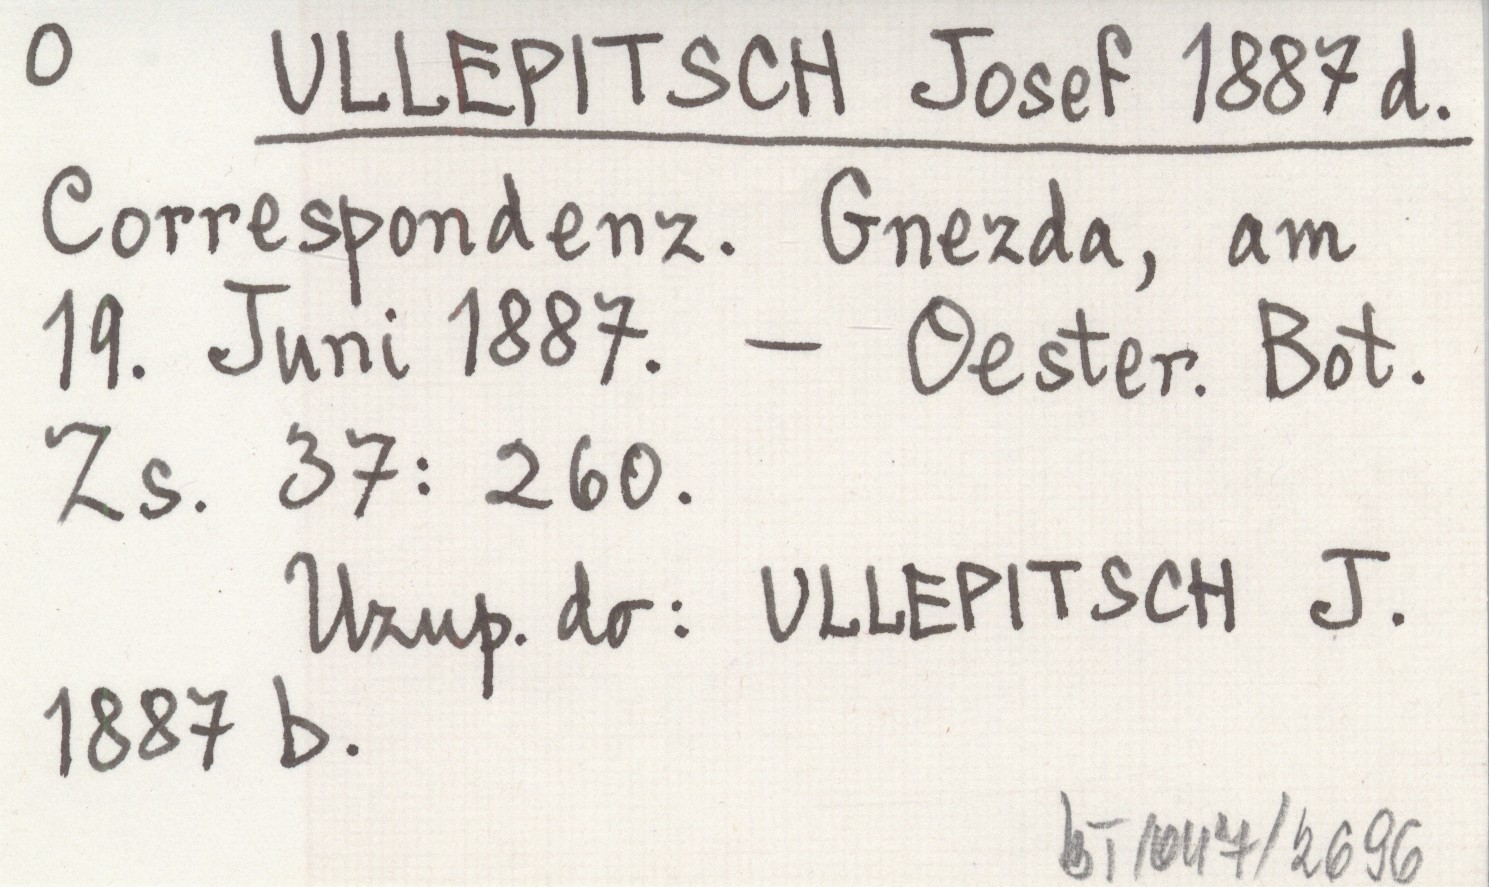 O ULLEPITSCH Josef 1887 d.
Correspondenz. Gnezda, am
19. Juni 1887. — Oester. Bot.
Zs. 37: 260.
Uzup. do: ULLEPITSCH J.
1887 b.
/2696